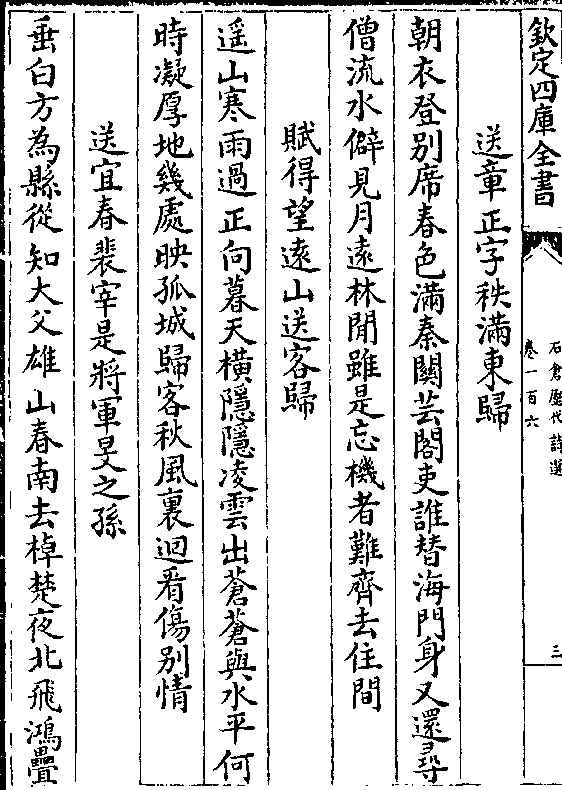 欽定四庫全書
石倉歷代詩選
卷一百六
三
送章正字秩滿東歸
朝衣登别席春色滿秦關芸閣吏誰替海門身又還尋
僧流水僻見月遠林閒雖是忘機者難齊去住間
賦得望遠山送客歸
遥山寒雨過正向暮天横隱隱凌雲出蒼蒼與水平何
時凝厚地幾處映孤城歸客秋風裏迴看傷别情
送宜春裴宰是將軍旻之孫
垂白方為縣從知大父雄山春南去棹楚夜北飛鴻疊